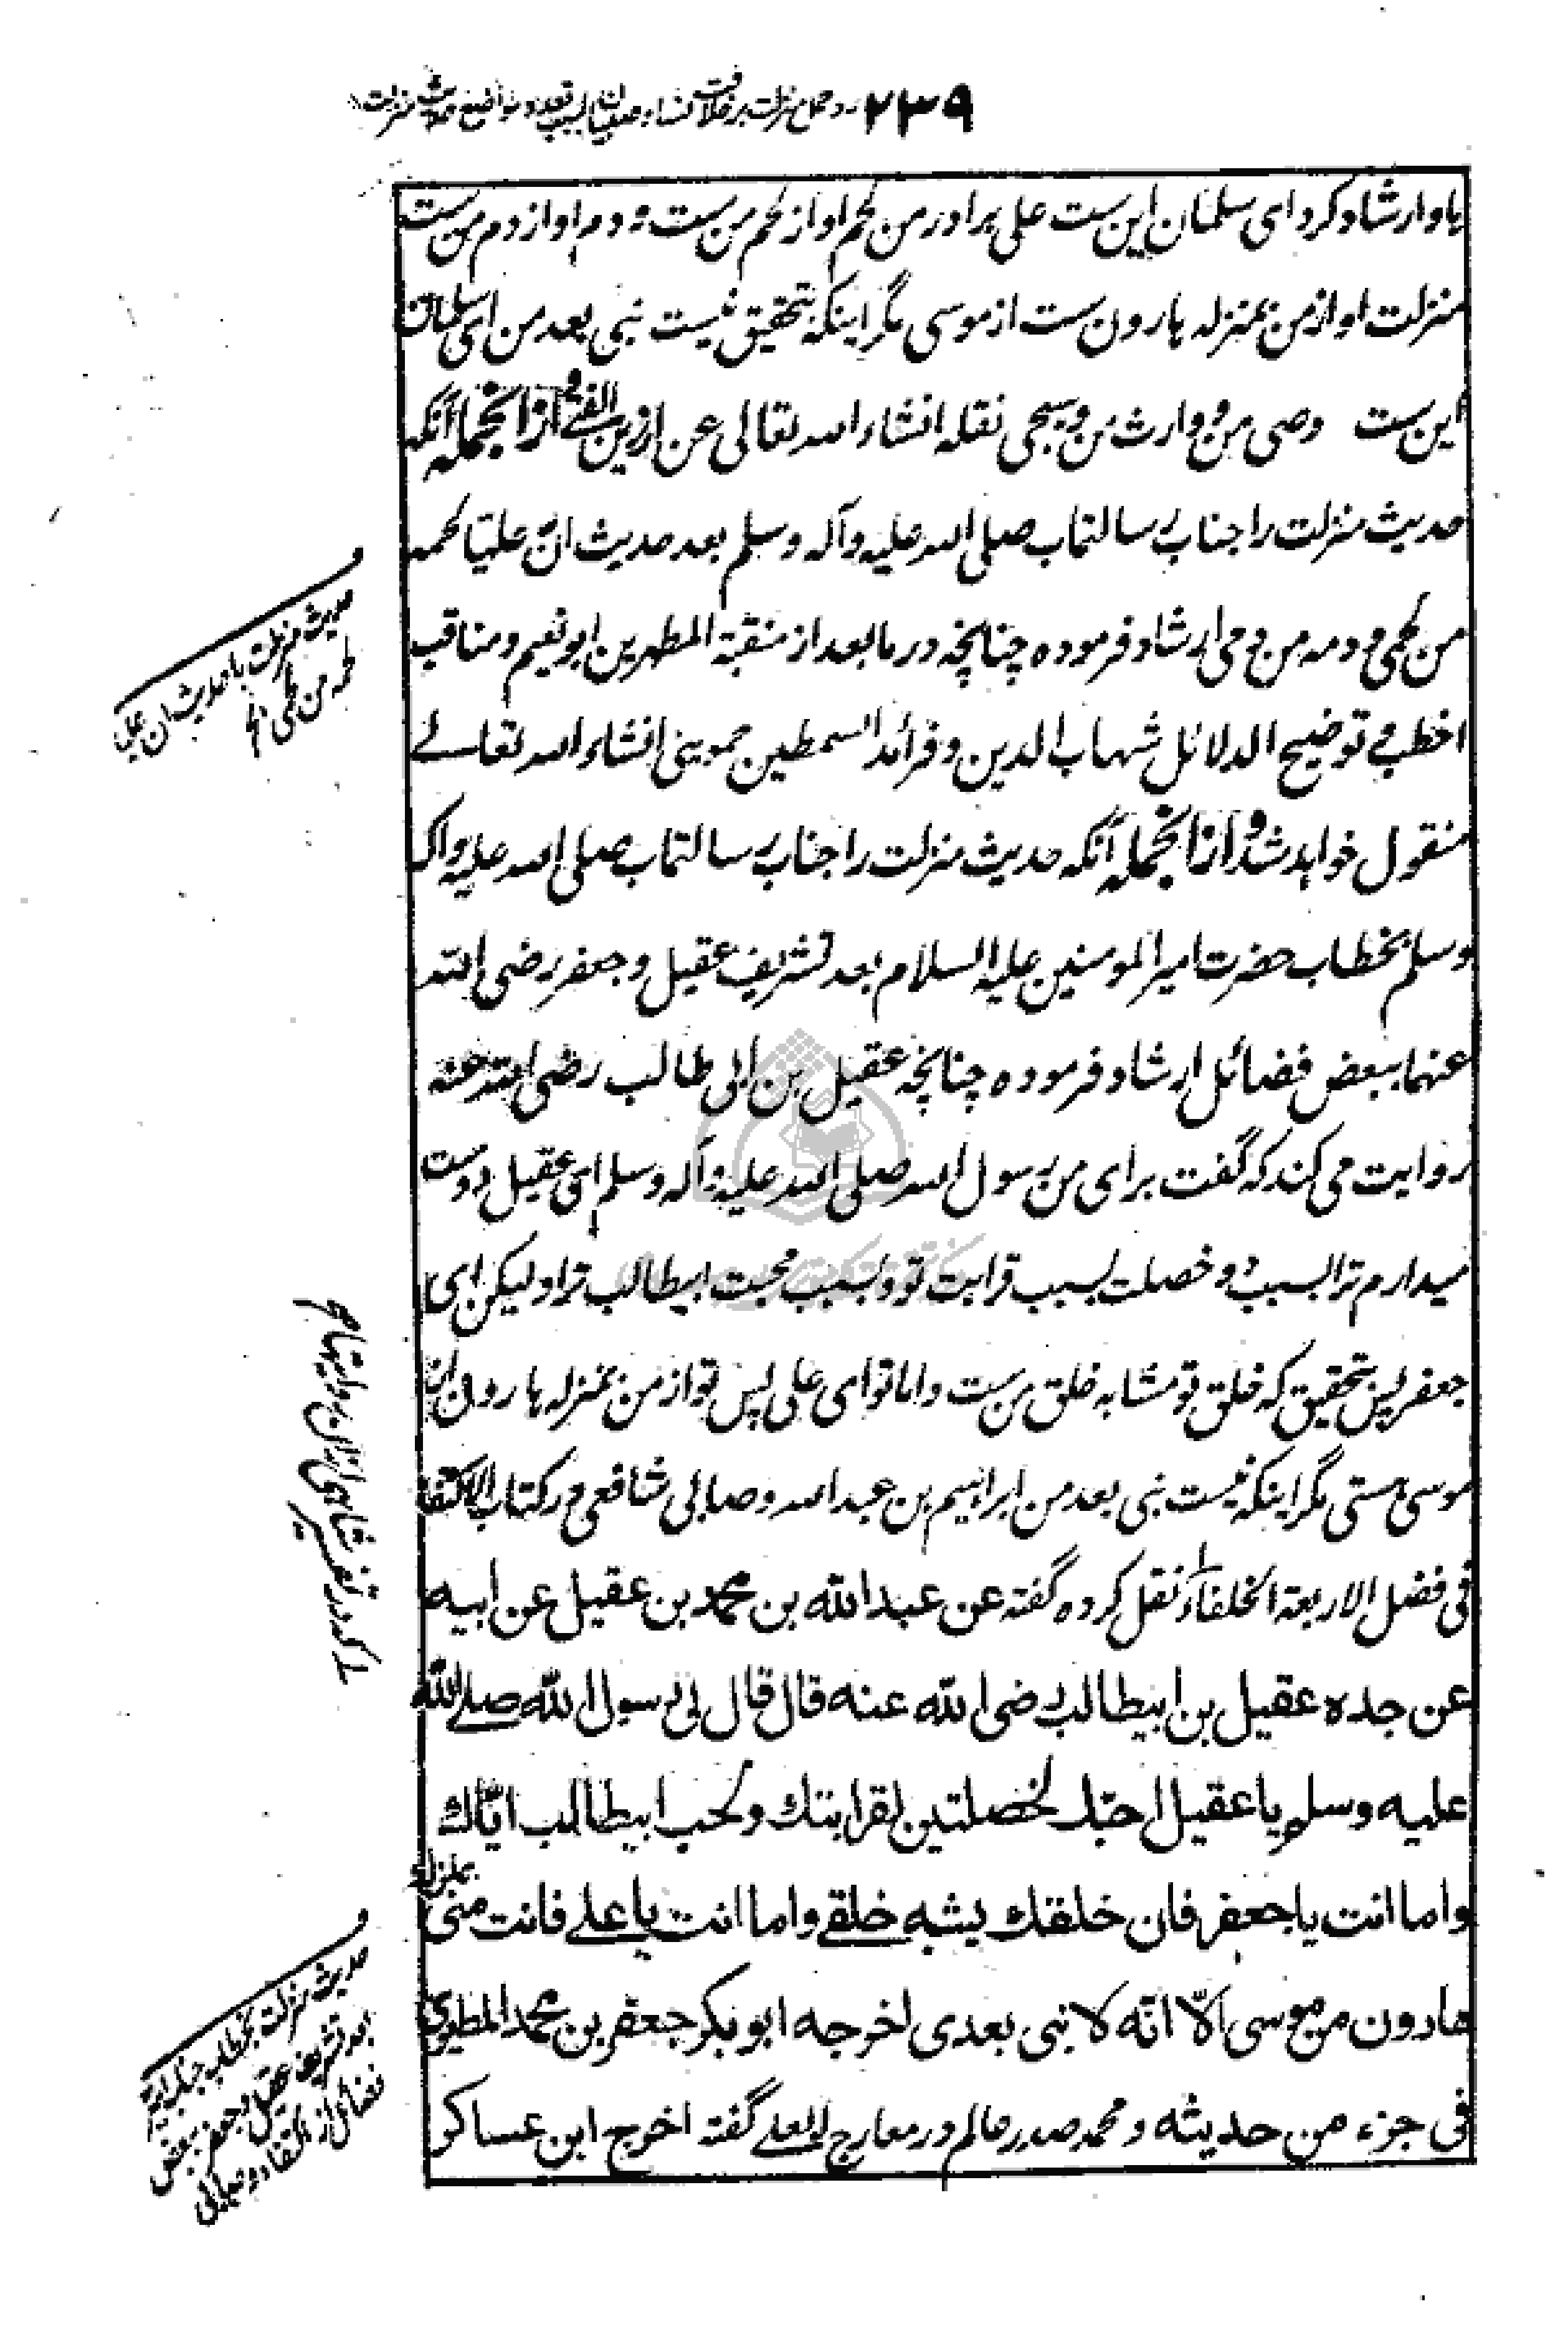 ۲۳۹
باو ارشاد کرد ای سلمان این ست علی برادر من لحم او از لحم من ست و دم او از دم من ست
منزلت او از من بمنزله هارون ست از موسی مگر اینکه بتحقیق نیست نبی بعد من ای سلمان
این ست وصی من و وارث من و سیجی نقله انشاء الله تعالی عن ازین الفتی و ازانجمله آنکه
حدیث منزلت را جناب رسالتمآب صلی الله علیه وآله وسلم بعد حدیث ان علیا لحمه
من لحمی و دمه من دمی ارشاد فرموده چنانچه در ما بعد از منقبة المطهرین ابو نعیم و مناقب
اخطب و توضیح الدلائل شهاب الدین و فرائد السمطین حموینی انشاء الله تعالے
منقول خواهد شد و ازانجمله آنکه حدیث منزلت را جناب رسالتمآب صلی الله علیه وآله
وسلم بخطاب حضرت امیر المومنین علیه السلام بعد تشریف عقیل و جعفر رضی الله
عنهما ببعض فضائل ارشاد فرموده چنانچه عقیل بن ابی طالب رضی الله عنه
روایت می کند که گفت برای من رسول الله صلی الله علیه وآله وسلم ای عقیل دوست
میدارم ترا بسبب دو خصلت بسبب قرابت تو و بسبب محبت ابیطالب ترا و لیکن ای
جعفر پس بتحقیق که خلق تو مشابه خلق من ست و اما تو ای علی پس تو از من بمنزله هارون از
موسی هستی مگر اینکه نیست نبی بعد من ابراهیم بن عبد الله وصابی شافعی در کتاب الاکتفا
فی فضل الاربعة الخلفاء نقل کرده گفته عن عبد الله بن محمد بن عقیل عن ابیه
عن جده عقیل بن ابیطالب رضی الله عنه قال قال لی رسول الله صلے الله
علیه وسلم یا عقیل احبك لخصلتین لقرابتك ولحب ابیطالب ایّاك
واما انت یا جعفر فان خلقك یشبه خلقے واما انت یا علے فانت منی بمنزلة
هارون من موسی الّا انّه لا نبی بعدی اخرجه ابو بکر جعفر بن محمد المطیری
فی جزء من حدیثه و محمد صدر عالم در معارج العلے گفته اخرج ابن عساکر
حدیث منزلت با حدیث ان علی
لحمه من لحمی الخ
حدیث منزلت بخطاب جناب امیر
بعد تشریف عقیل و جعفر ببعض
فضائل از اکتفاء وصابی